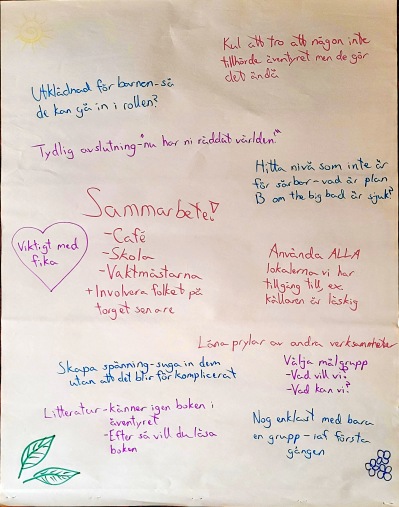 Kul att tro att någon inte
tillhörde äventyret men de gör
det ändå
Utklädnad för barnen-så
de kan gå in i rollen?
Tydlig avslutning-"nu har ni räddat världen!"
Hitta nivå som inte är
för sårbar-vad är plan
B om the big bad är sjuk?
Sammarbete!
-Café
-Skola
-Vaktmästarna
+Involvera folket på
torget senare
Viktigt med
fika
Använda ALLA
lokalerna vi har
tillgång till, ex
källaren är läskig
Låna prylar av andra verksamheter
Skapa spänning-suga in dem
utan att det blir för komplicerat
Välja målgrupp
-Vad vill vi?
-Vad kan vi?
Litteratur-känner igen boken i
äventyret
-Efter så vill du läsa
boken
Nog enklast med bara
en grupp-iaf första
gången